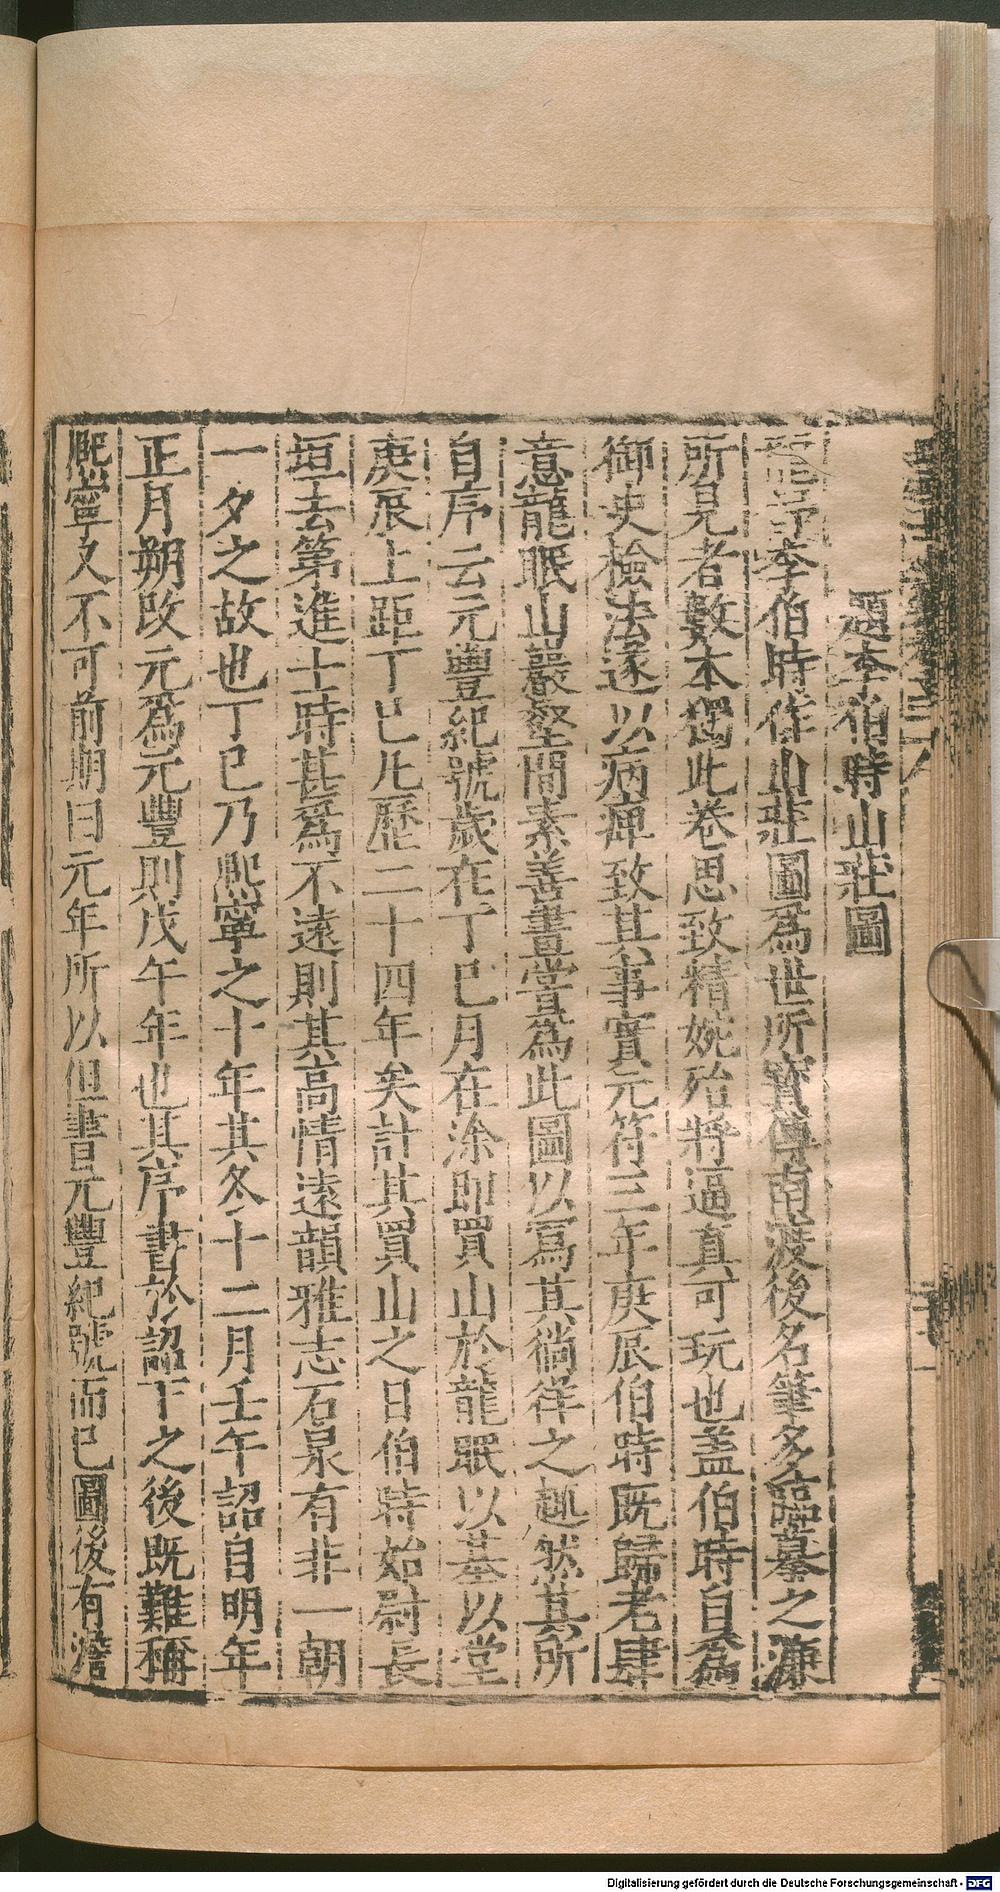 題李伯時山莊圖
龍李伯時作山莊圖爲世所寶傳南渡後名筆多臨摹之謙
所見者數本獨此卷思致精婉殆將逼真可玩也盖伯時自爲
御史檢法遂以病痺致其事實元符三年庚辰伯時既歸老肆
意龍眠山巖壑間素善畫嘗爲此圖以寫其徜徉之趣然其所
自序云元豐紀號歲在丁巳月在涂即買山於龍眠以基以堂
庚辰上距丁巳凡歷二十四年矣計其買山之日伯時始尉長
垣去第進士時甚爲不遠則其高情遠韻雅志石泉有非一朝
一夕之故也丁巳乃熙寧之十年其冬十二月壬午詔自明年
正月朔改元爲元豐則戊午年也其序書於詔下之後既難稱
熙寧又不可前期曰元年所以但書元豐紀號而已圖後有澹
Digitalisierung gefördert durch die Deutsche Forschungsgemeinschaft - DFG